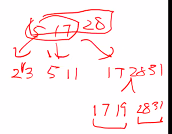 15 17 28
2 13 5 11 17 28 31
17 19 28 31